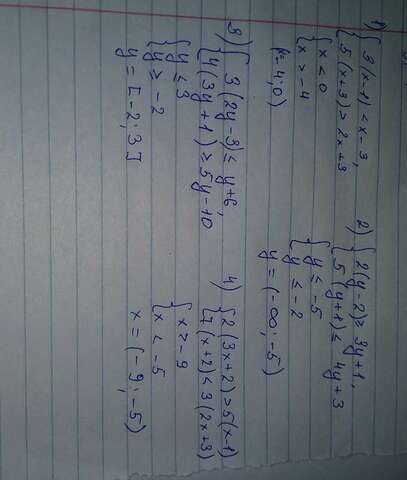 1) { 3(x-1) < x-3,
5(x+3) > 2x+3
{ x < 0
x > -4
(-4;0)
2) { 2(y-2) ≥ 3y+1,
5(y+1) ≤ 4y+3
{ y ≤ -5
y ≤ -2
y = (-∞;-5)
3) { 3(2y-3) ≤ y+6,
4(3y+1) ≥ 5y-10
{ y ≤ 3
y ≥ -2
y = [-2;3]
4) { 2(3x+2) > 5(x-1)
7(x+2) < 3(2x+3)
{ x > -9
x < -5
x = (-9;-5)